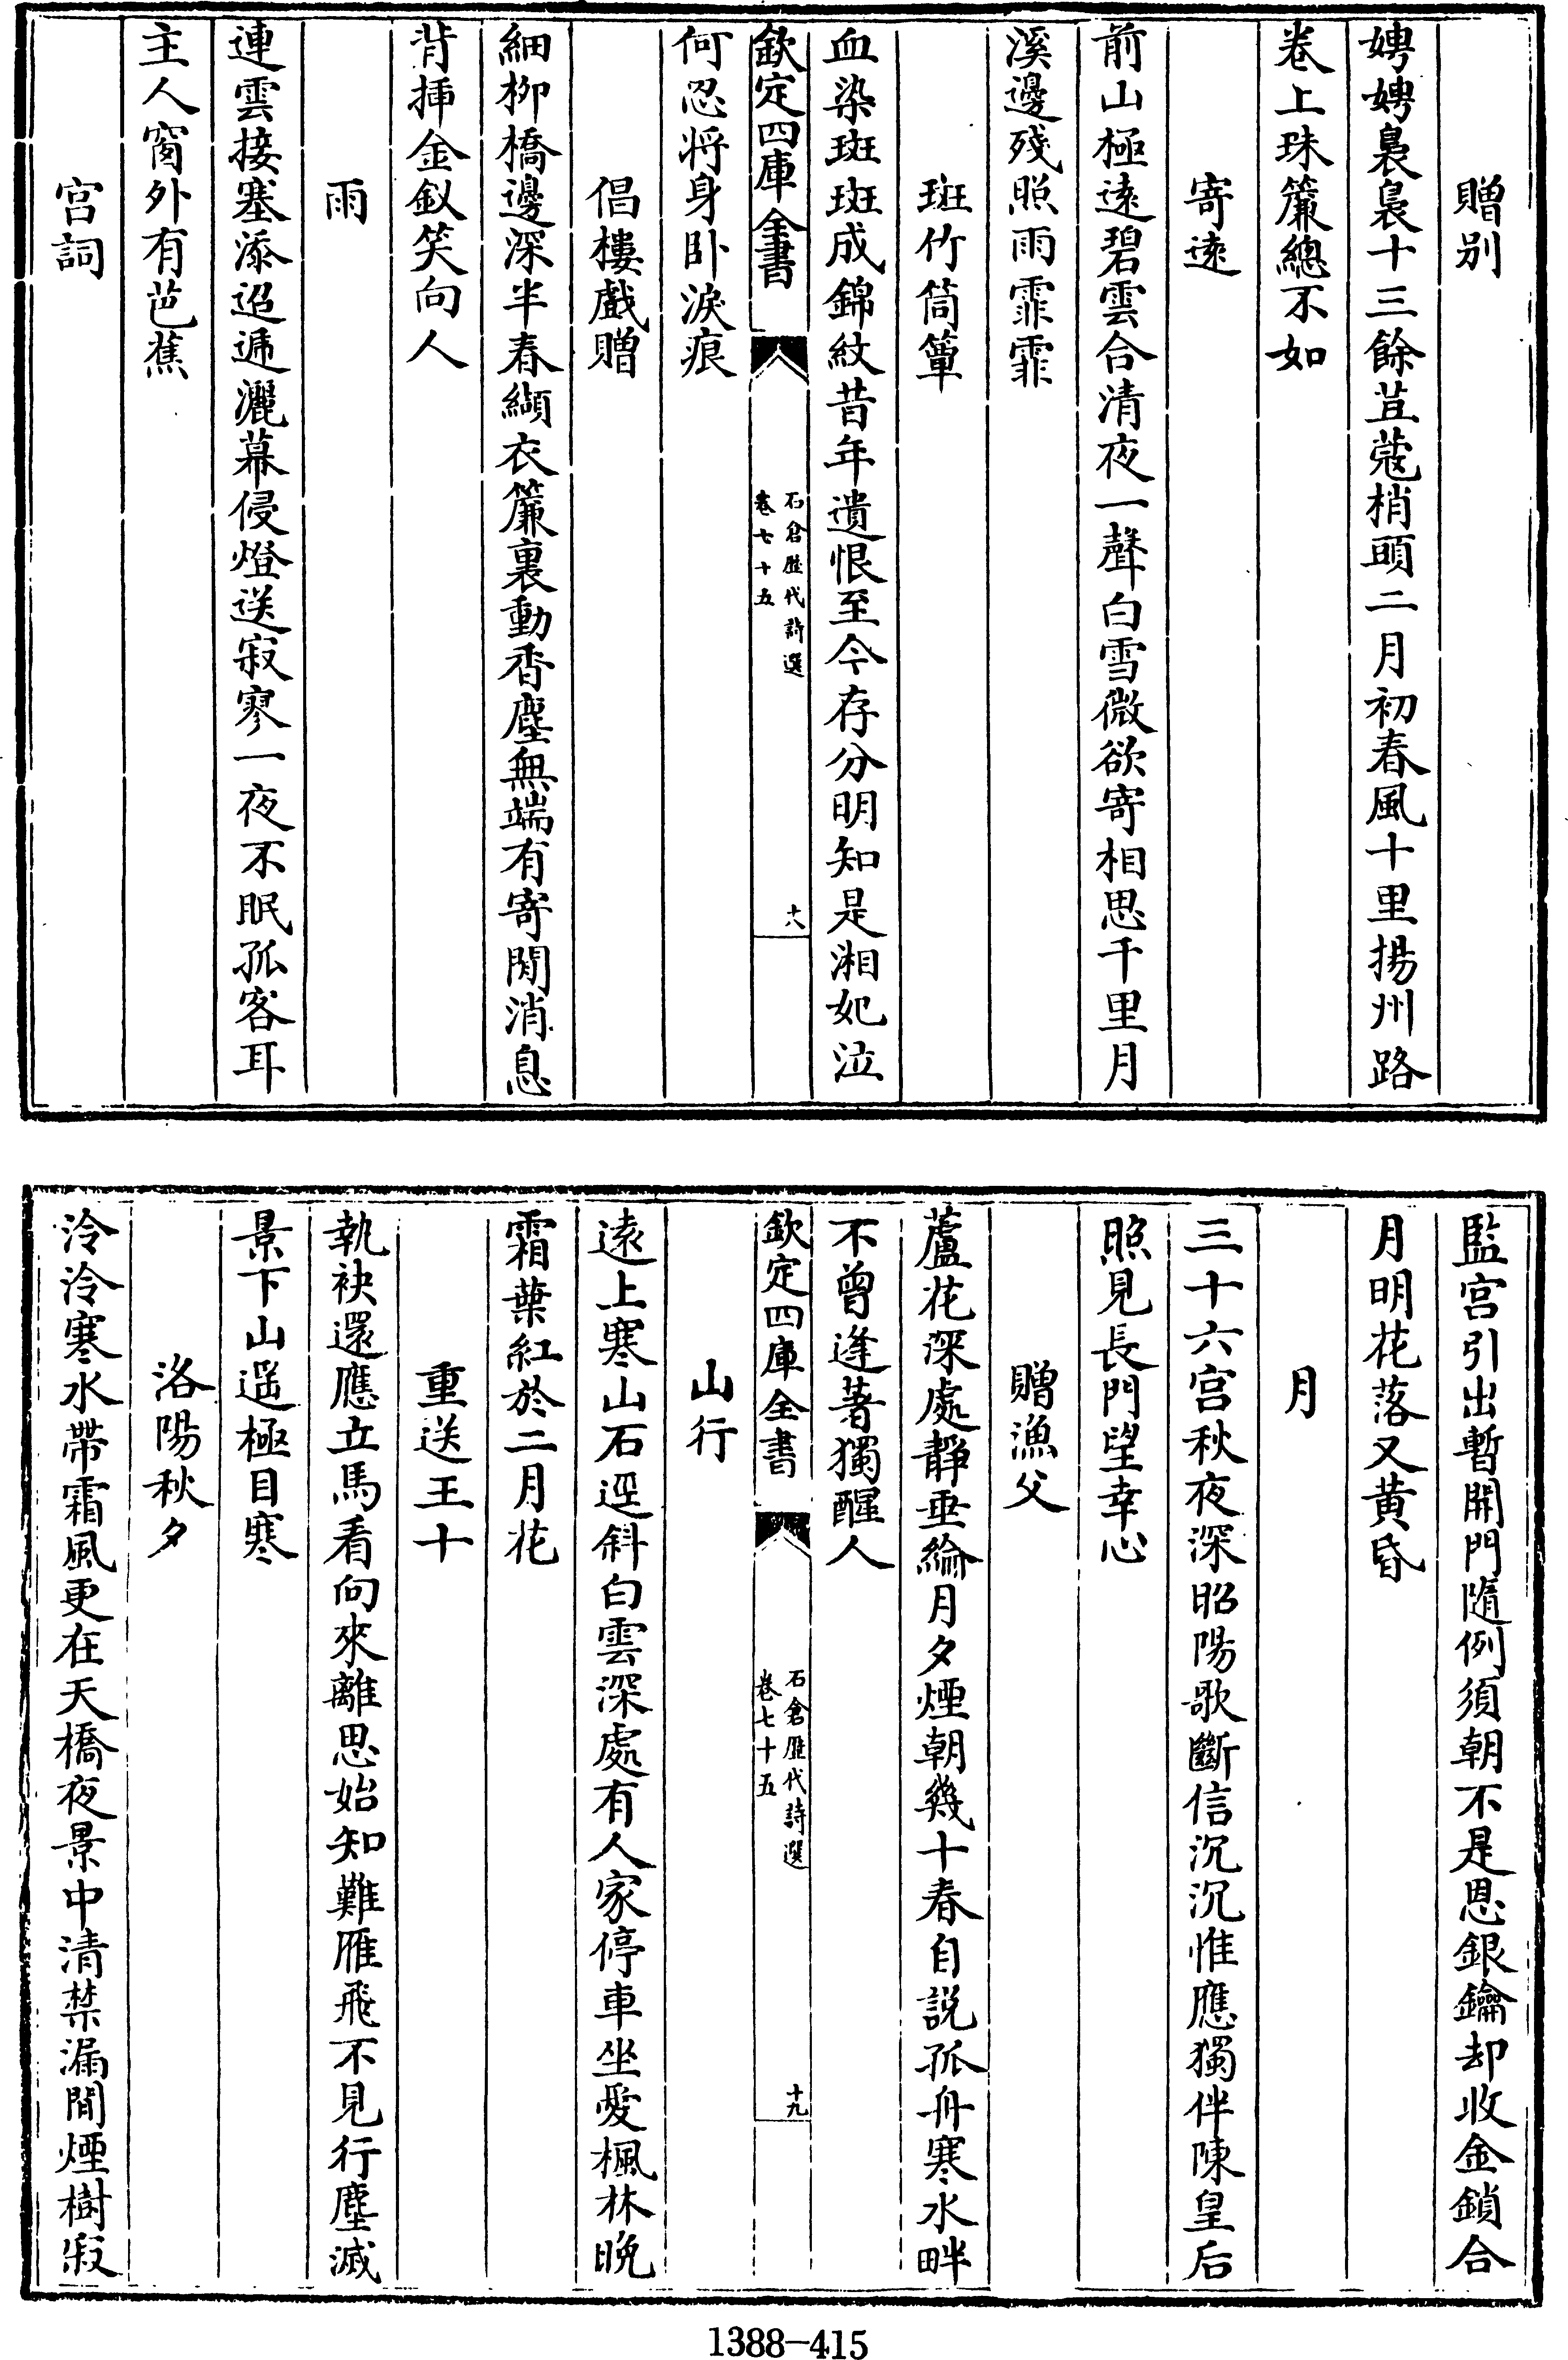 贈别
娉娉裊裊十三餘荳蔻梢頭二月初春風十里揚州路
卷上珠簾總不如
寄遠
前山極遠碧雲合清夜一聲白雪微欲寄相思千里月
溪邊殘照雨霏霏
斑竹筒簟
血染斑斑成錦紋昔年遺恨至今存分明知是湘妃泣
欽定四庫全書
石倉歷代詩選
卷七十五
十八
何忍將身卧淚痕
倡樓戲贈
細柳橋邊深半春纈衣簾裏動香塵無端有寄閒消息
背揷金釵笑向人
雨
連雲接塞添迢遞灑幕侵燈送寂寥一夜不眠孤客耳
主人窗外有芭蕉
宫詞
監宫引出暫開門隨例須朝不是恩銀鑰却收金鎖合
月明花落又黄昏
月
三十六宫秋夜深昭陽歌斷信沉沉惟應獨伴陳皇后
照見長門望幸心
贈漁父
蘆花深處靜垂綸月夕煙朝幾十春自説孤舟寒水畔
不曾逢著獨醒人
欽定四庫全書
石倉歷代詩選
卷七十五
十九
山行
遠上寒山石逕斜白雲深處有人家停車坐愛楓林晚
霜葉紅於二月花
重送王十
執袂還應立馬看向來離思始知難雁飛不見行塵滅
景下山遥極目寒
洛陽秋夕
泠泠寒水帶霜風更在天橋夜景中清禁漏閒煙樹寂
1388-415